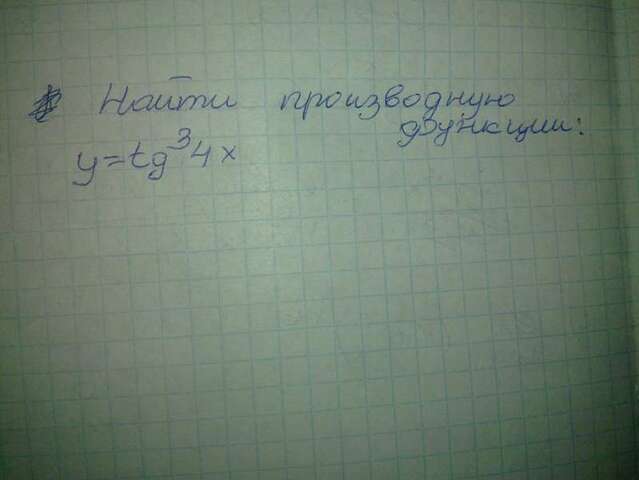 Найти производную
функции:
y=tg³4x